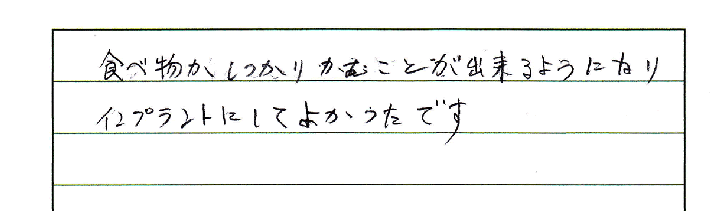 食べ物がしっかりかむことが出来るようになり
インプラントにしてよかったです